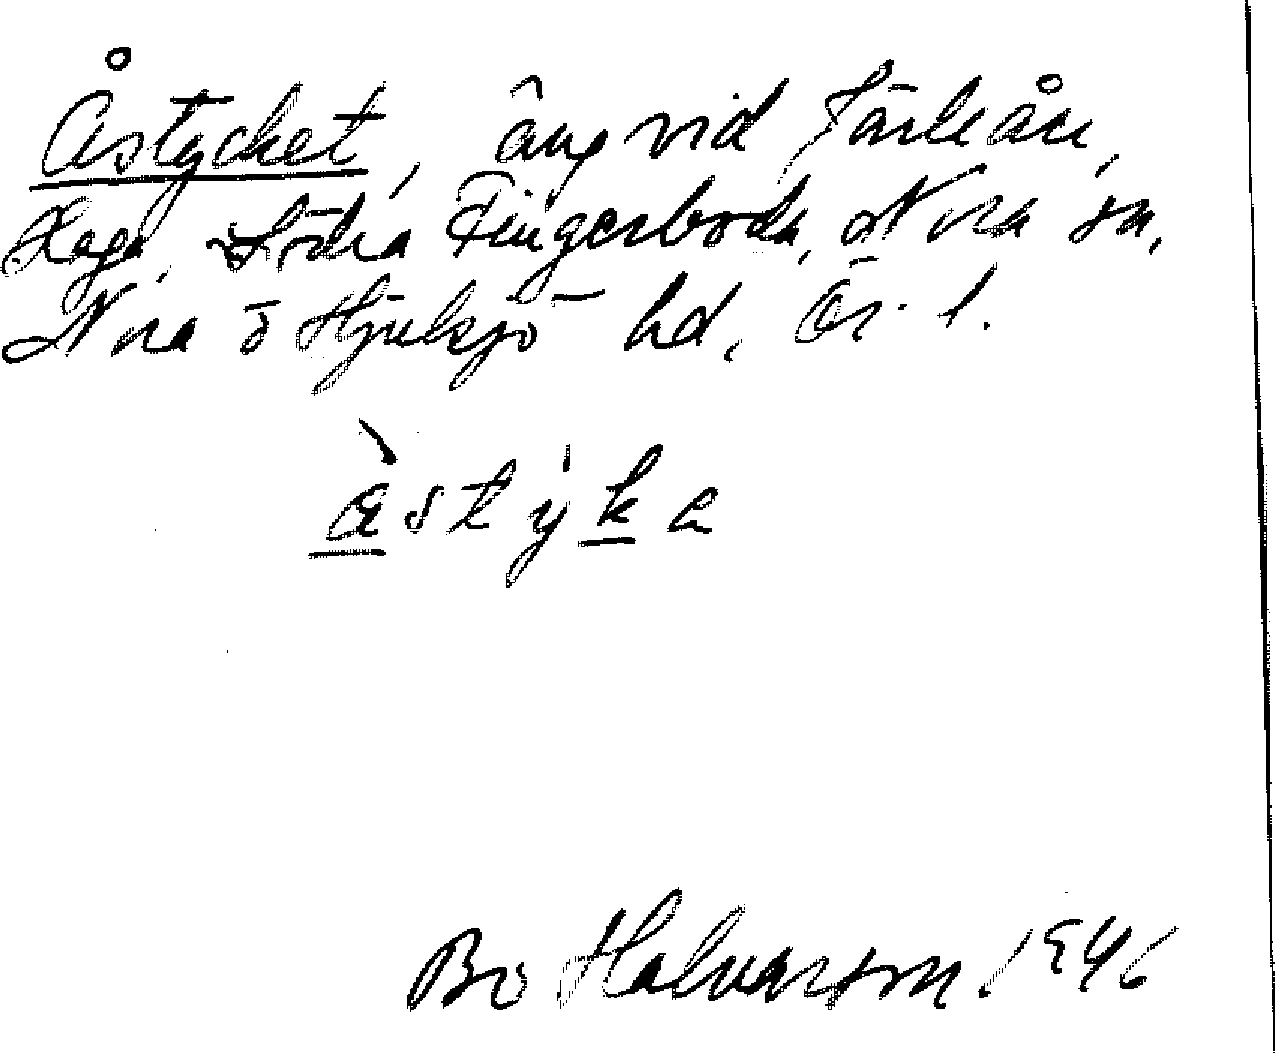 Åstycket, äng vid Järleån,
Haga, Södra Fingerboda, Nora sn,
Nora o Hjulsjö hd, Ör. l.
àstỳka
Bo Halvarson 1946